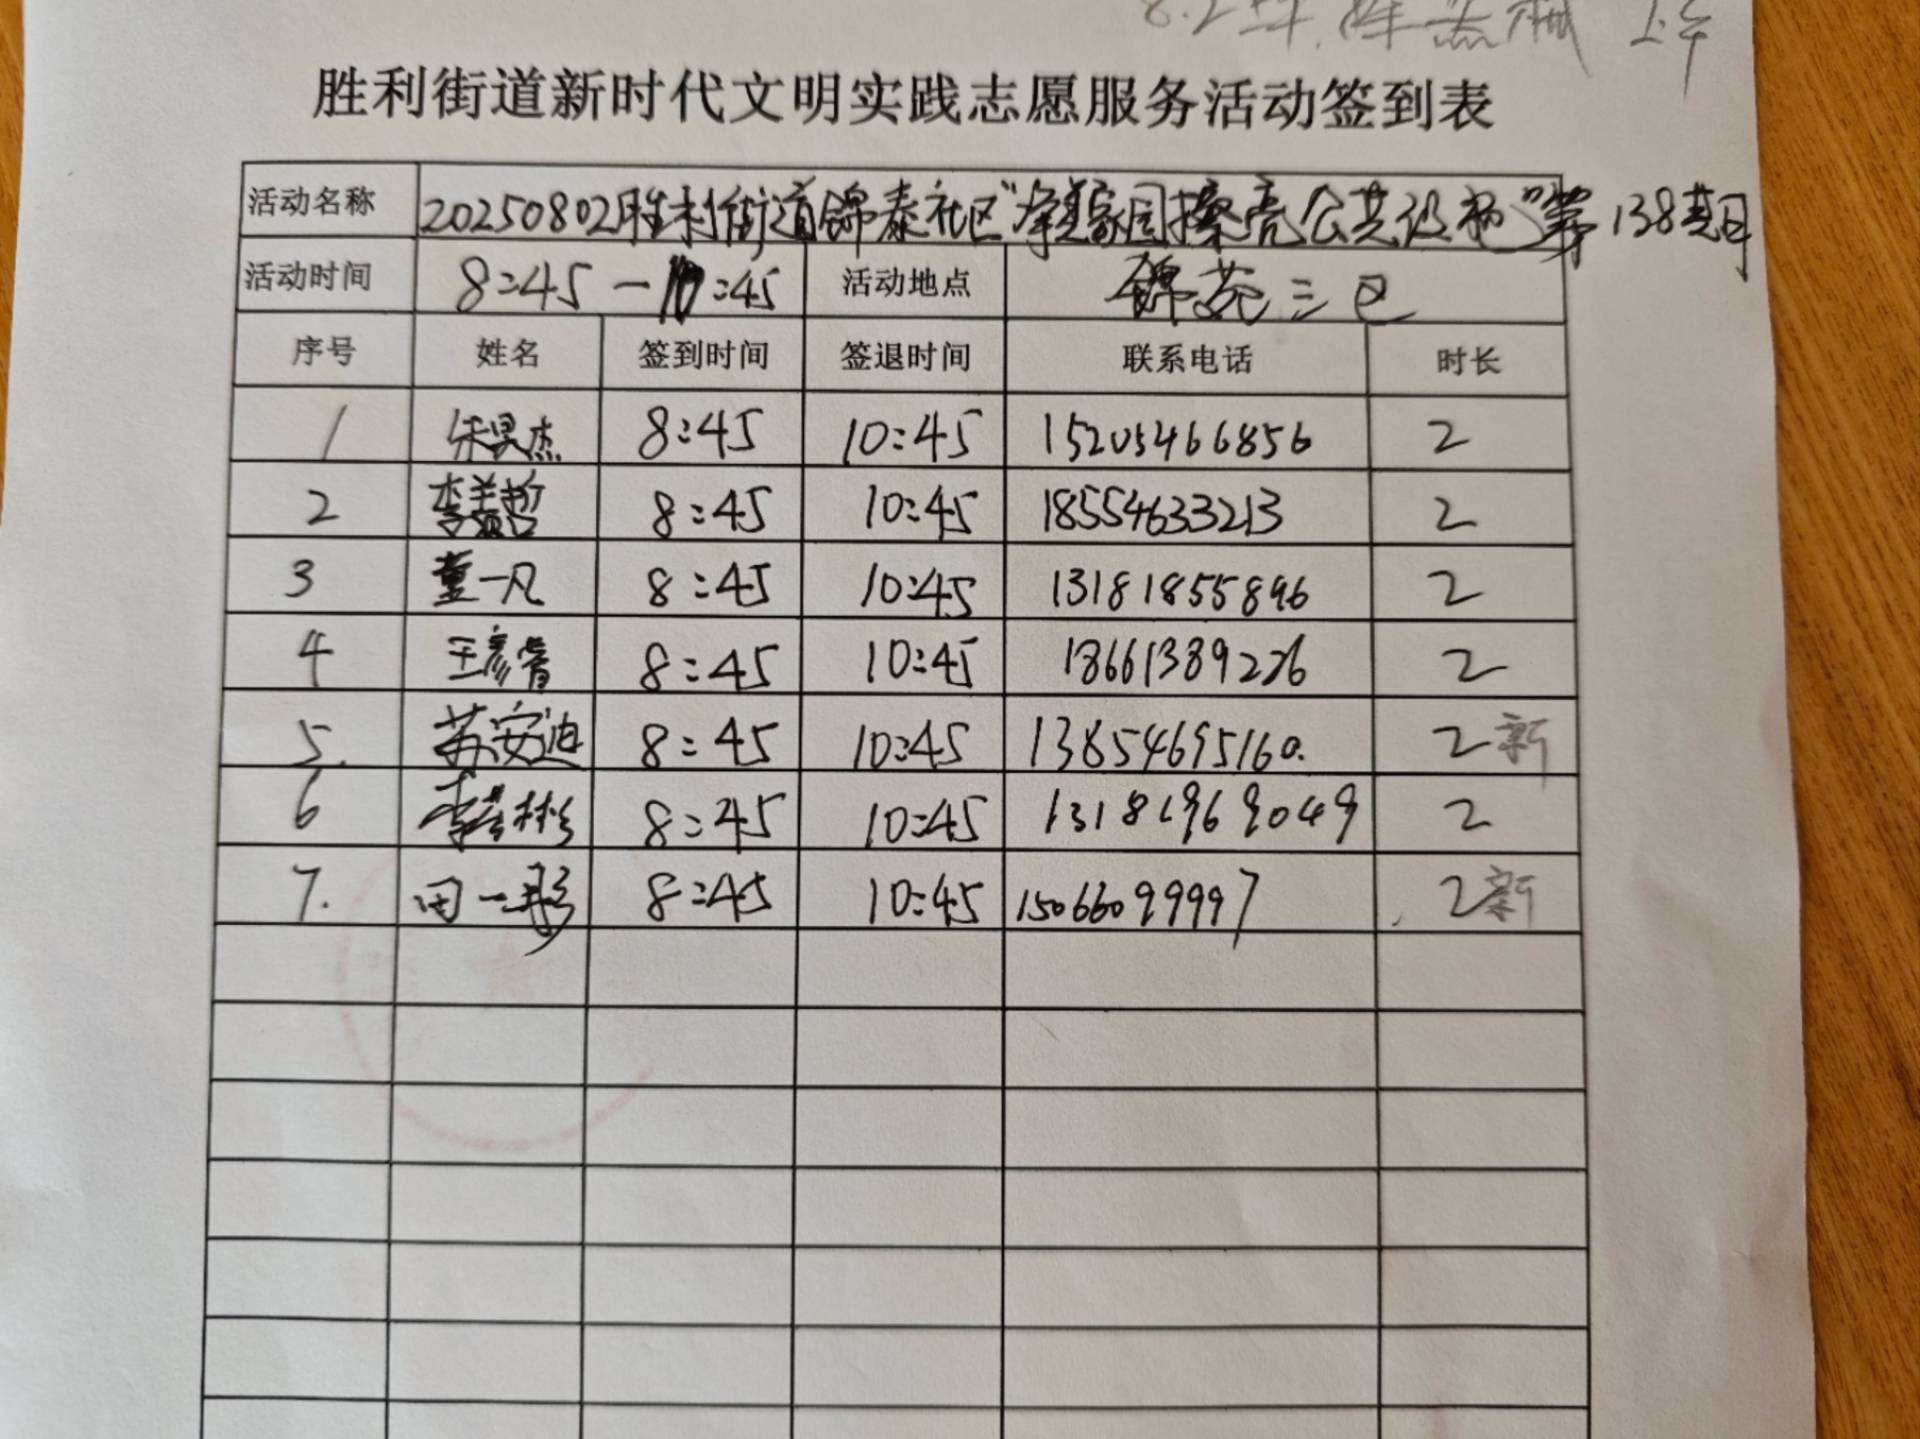 上午
胜利街道新时代文明实践志愿服务活动签到表
活动名称 20250802胜利街道锦泰社区“净美家园擦亮公共设施”第138期
活动时间 8:45-10:45 活动地点 锦苑三区
序号 姓名 签到时间 签退时间 联系电话 时长
1 8:45 10:45 15205466856 2
2 8:45 10:45 18554633213 2
3 董一凡 8:45 10:45 13181855896 2
4 王彦睿 8:45 10:45 18661389226 2
5. 苏安迪 8:45 10:45 13854695160. 2新
6 8:45 10:45 13181969049 2
7. 田一彤 8:45 10:45 15066099997 2新